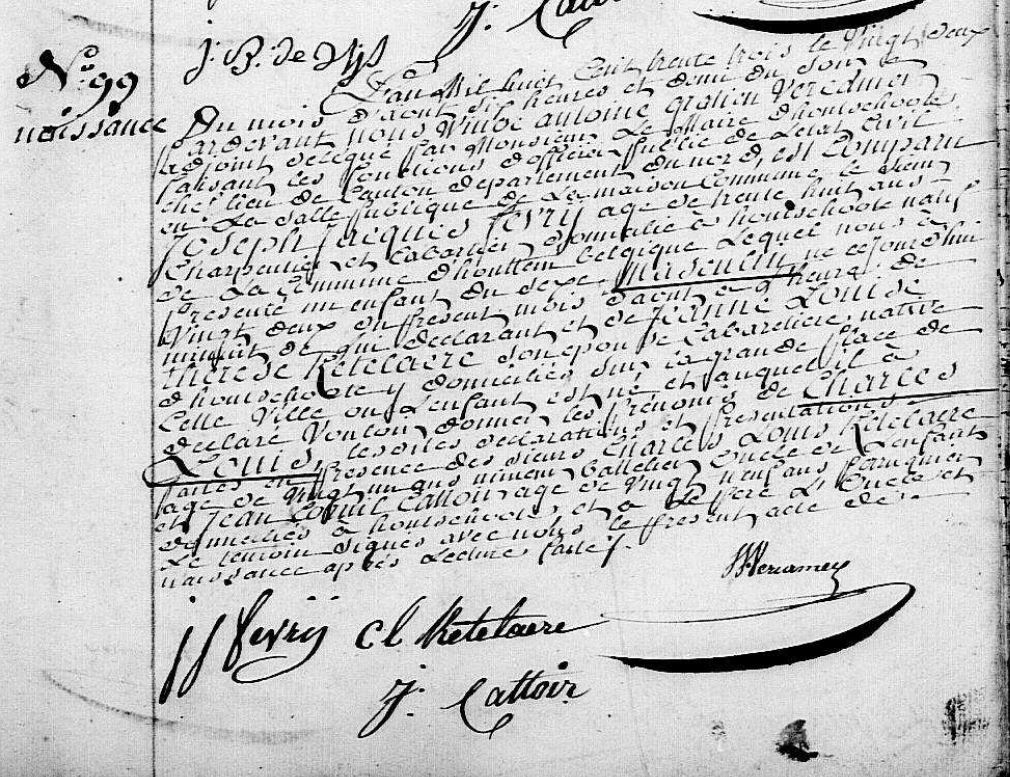 J. Cattoir
j. B. de Nys
N.º 99
naissance
L'an Mil huit Cent trente trois le vingt deux
Du mois d'aout six heures et demi du soir
Pardevant nous antoine gratien Vercamer
adjoint délégué par Monsieur Le Maire d'hontschoote
faisant les fonctions d'officier public de L'etat Civil
chef lieu de Canton departement du nord, est Comparu
en La salle publique de La maison Commune le sieur
Joseph jacques fevry agé de trente huit ans
Charpentier et Cabartier domicilié à hontschoote natif
de La Commune d'houttem belgique Lequel nous à
presenté un enfant du sexe masculin né cejourd'hui
vingt deux du present mois d'aout a heure de
de lui declarant et de Jeanne Louise
therese Ketelaere son epouse Cabardiere native
d'hontschoote y domiciliés sur la grande place de
Cette Ville ou L'enfant est né et auquel il à
declaré vouloir donner les Prénoms de Charles
Louis, lesdites declarations et presentations
faites en presence des sieurs Charles Louis Ketelaere
agé de vingt un ans mineur battelier oncle de L'enfant
et Jean Cattoir agé de vingt neuf ans
domiciliés à hontschoote, et a Le pere L'oncle et
Le temoin signés avec nous le present acte de
naissance après Lecture faite.
Vercamer
jj fevry cl Ketelaere
J. Cattoir